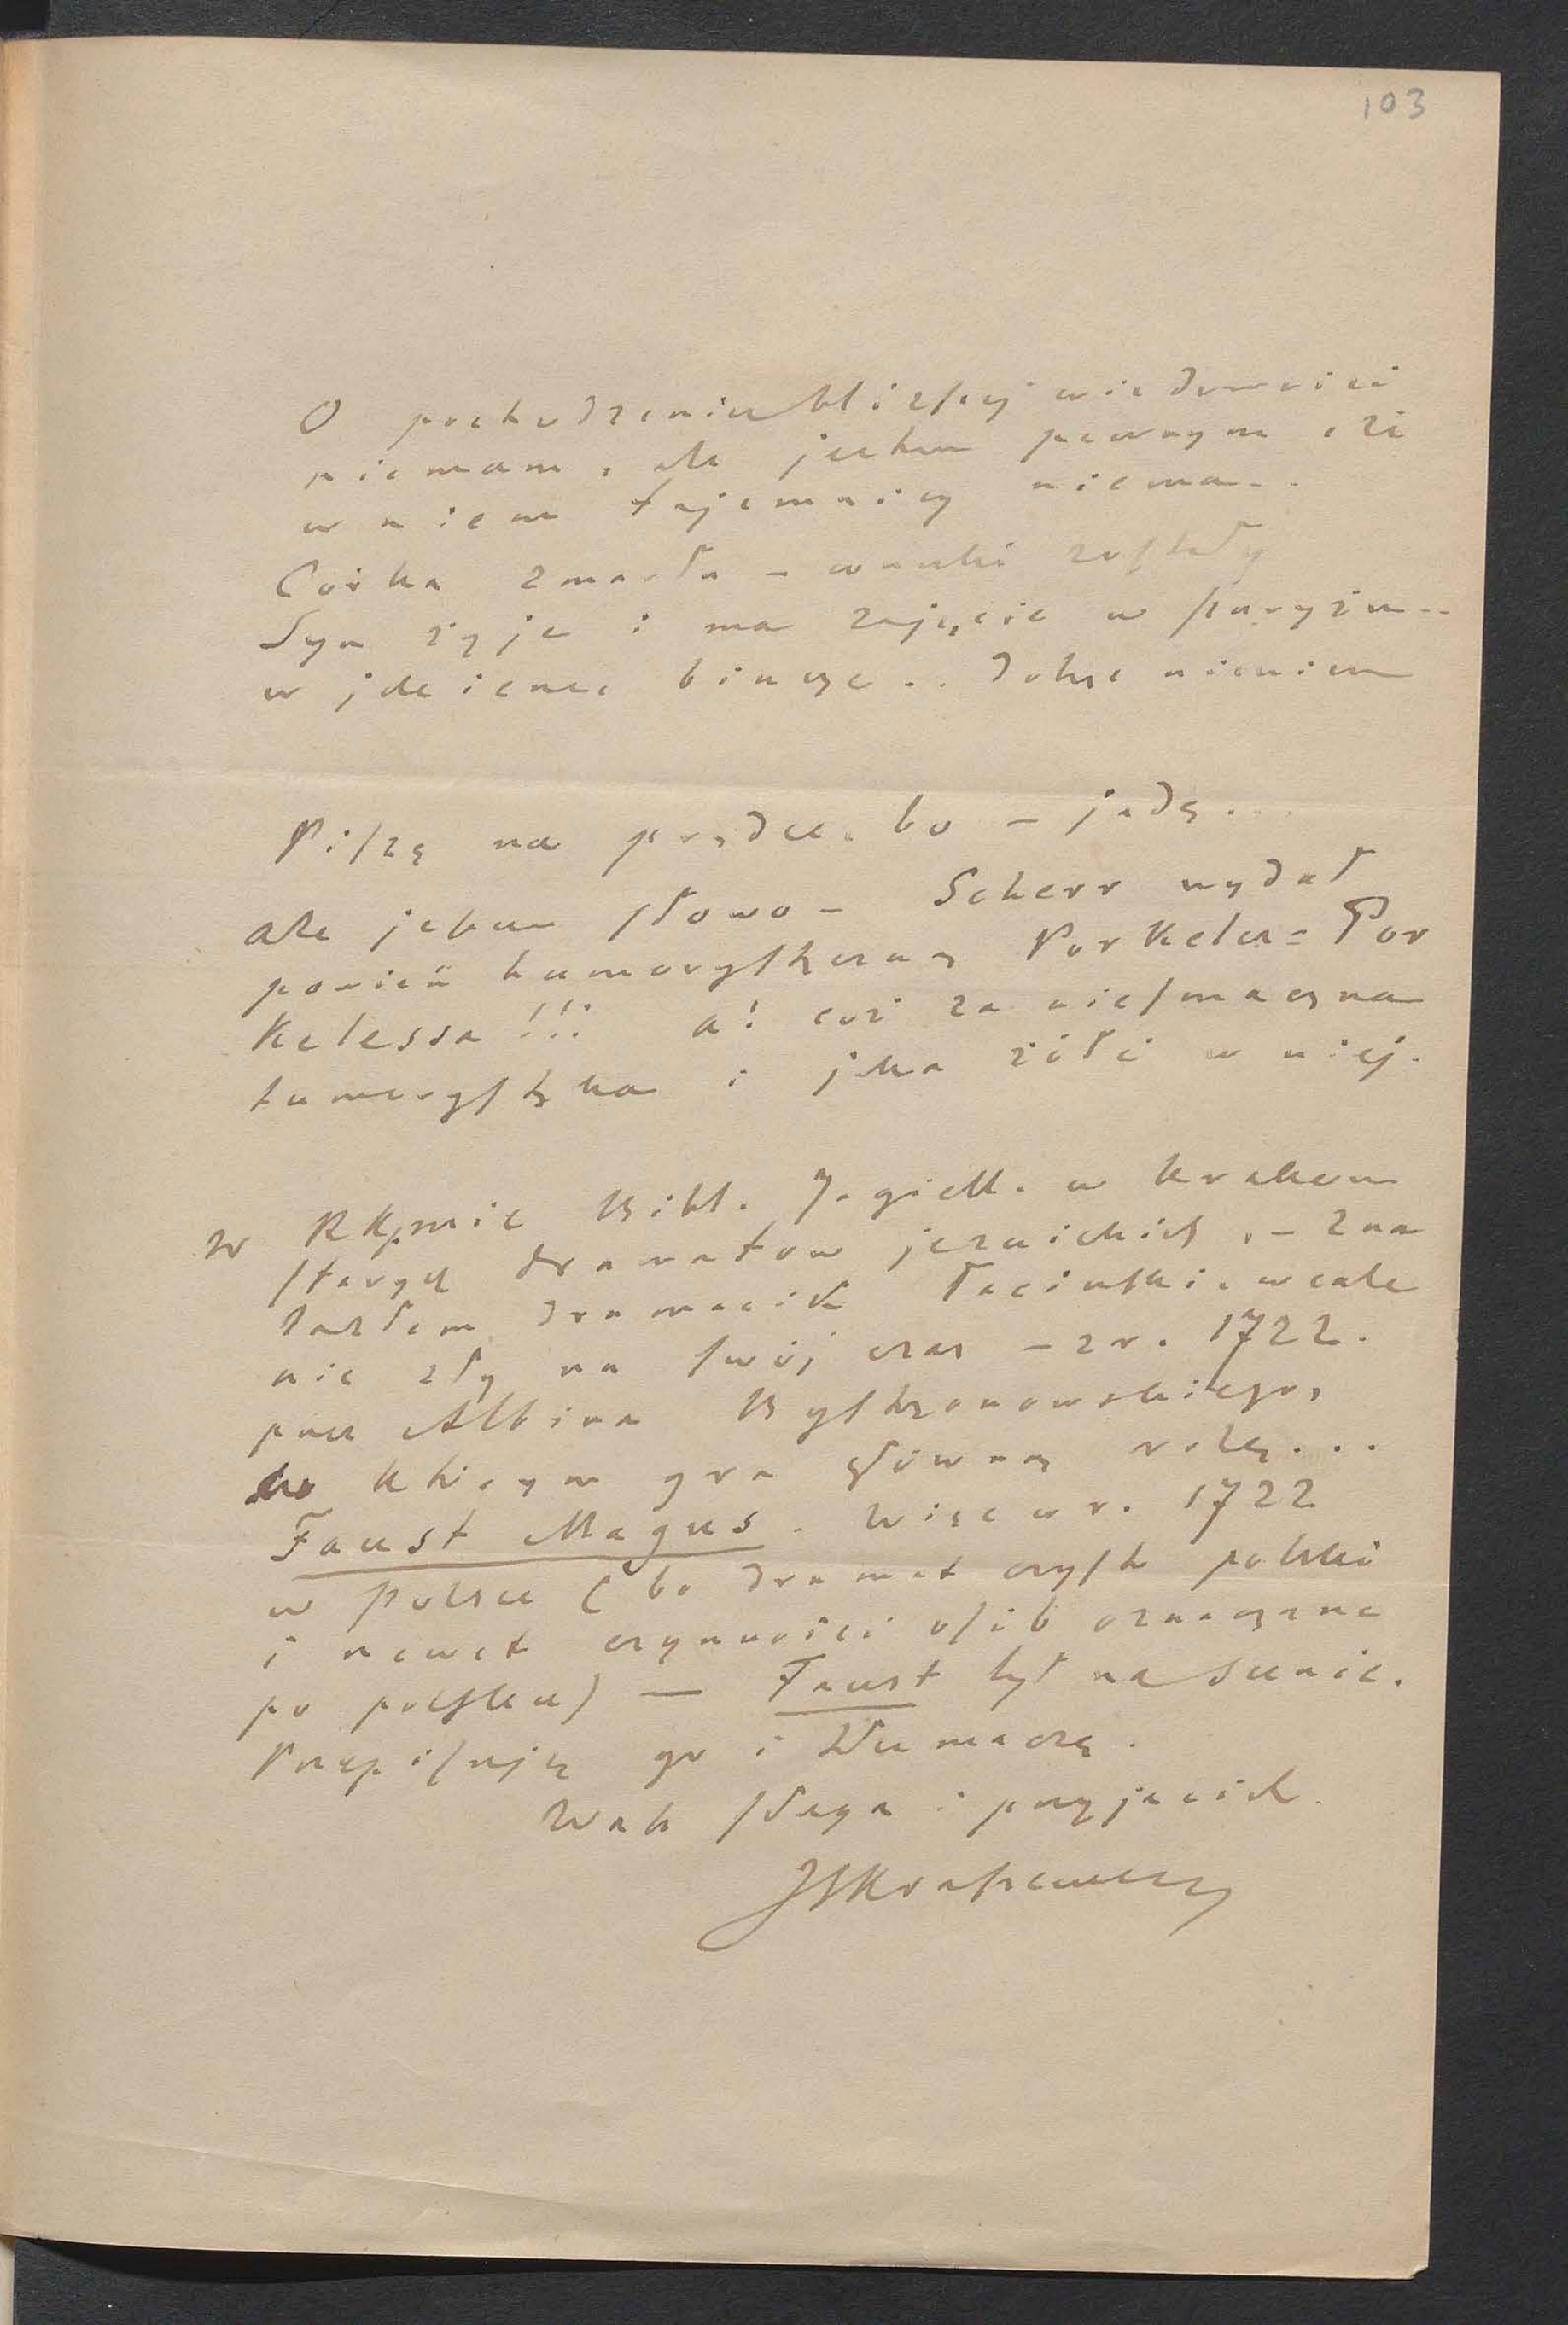 103
O pochodzeniu bliższej wiadomości
niemam, ale jestem pewnym, że
w niem tajemnicy niema..
Córka zmarła – wnuki zostały
Syn żyje i ma zajęcie w Paryżu..
w jakiemś biurze.. dobrze niewiem
Piszę na prędce. bo – jadę...
ale jedno słowo – Scherr wydał
powieść humorystyczną Porkeles = Por
kelessa!!! a! cóż za niesmaczna
humorystyka i jaka żółć w niej.
W Rkpmie Bibl. Jagiell. w Krakow
starych dramatów jezuickich, – zna
lazłem dramacik łaciński, wcale
nie zły na swój czas – z r. 1722.
przez Albina Bystrzonowskiego,
w którym gra główną rolę...
Faust Magus. Więc w r. 1722
w Polsce (bo dramat czysto polski
i nawet czynności osób oznaczone
po polsku) — Faust był na scenie.
Przepisuję go i tłumaczę.
Wasz sługa i przyjaciel
JIKraszewski